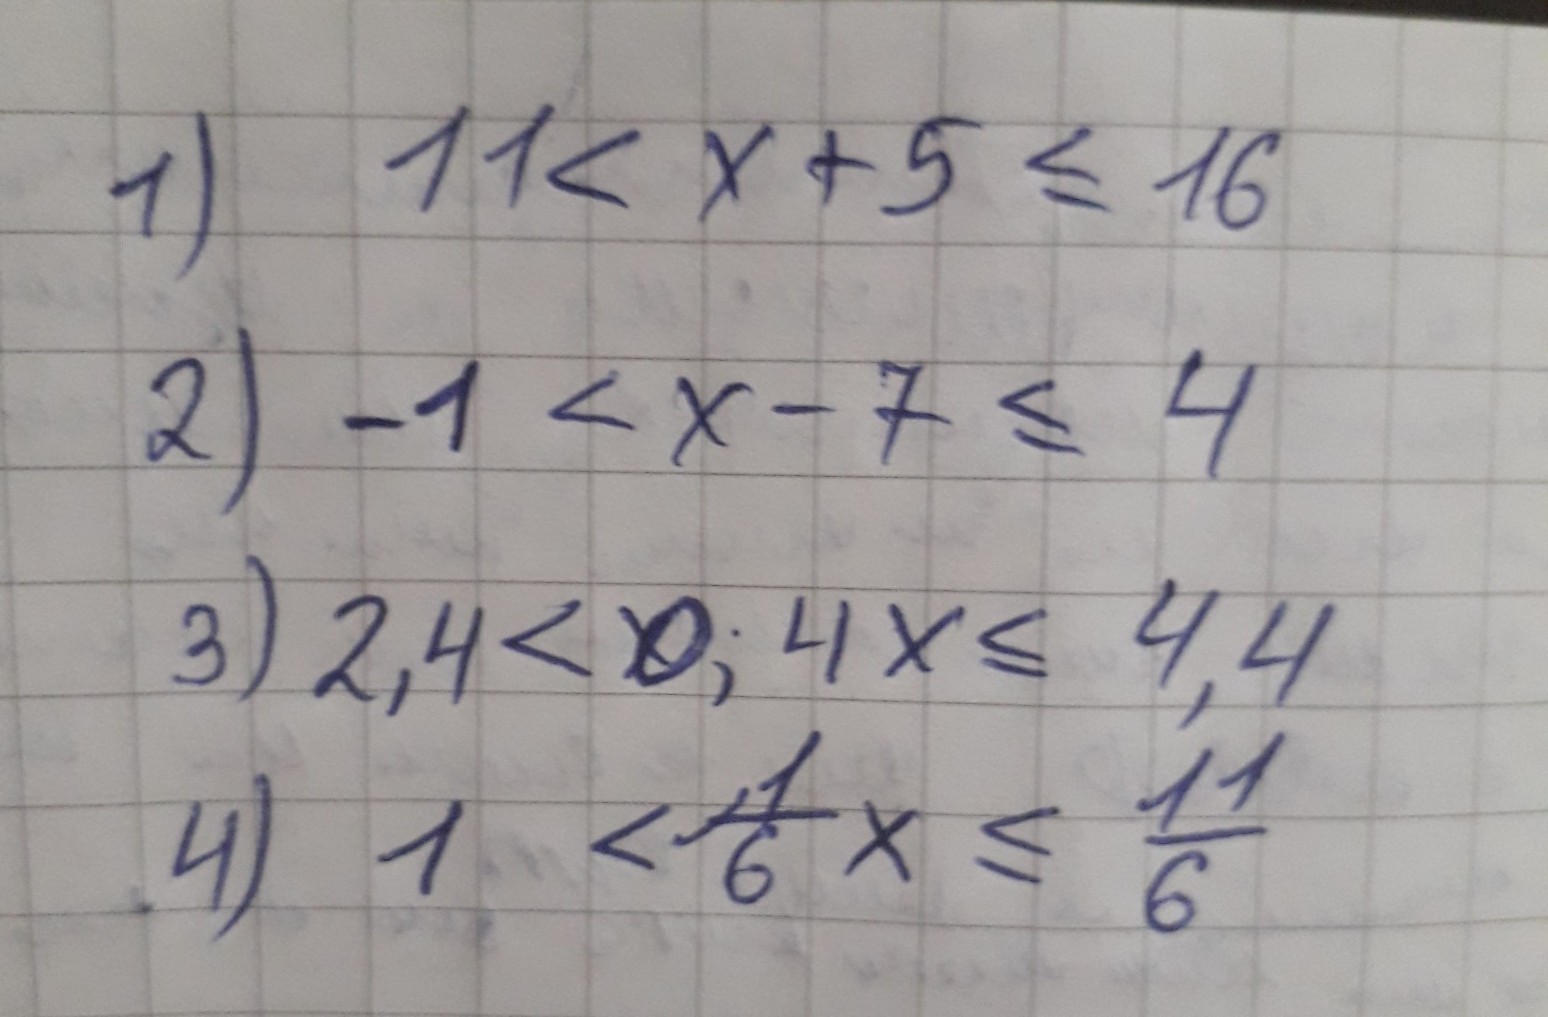 1) 11 < x + 5 ≤ 16
2) -1 < x - 7 ≤ 4
3) 2,4 < 0; 4x ≤ 4,4
4) 1 < 1/6 x ≤ 11/6